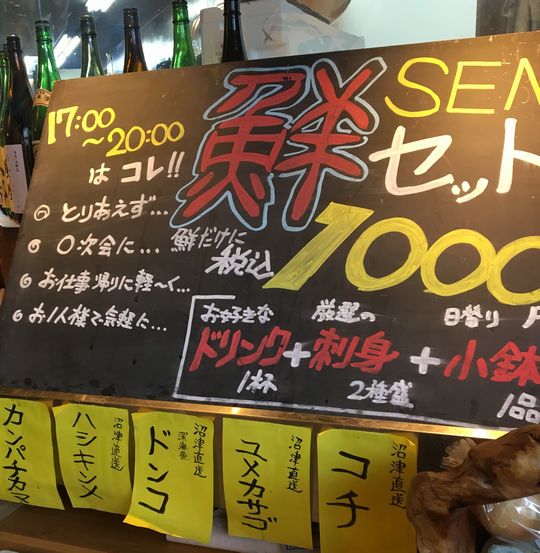 17:00
〜20:00
は コレ!!
鮮 SEN
セット
とりあえず...
〇次会に...
お仕事帰りに軽〜く...
お1人様で気軽に...
鮮だけに
税込
1000
お好きな
ドリンク
1杯
+
厳選の
刺身
2種盛
+
日替り
小鉢
1品
カンパチカマ
ハシキンメ
沼津直送
ドンコ
沼津直送
深海魚
ユメカサゴ
沼津直送
コチ
沼津直送